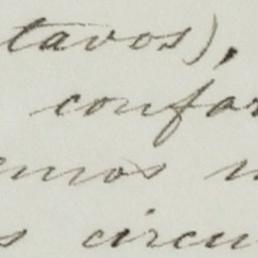 tavos),
confor
emos n
s circu